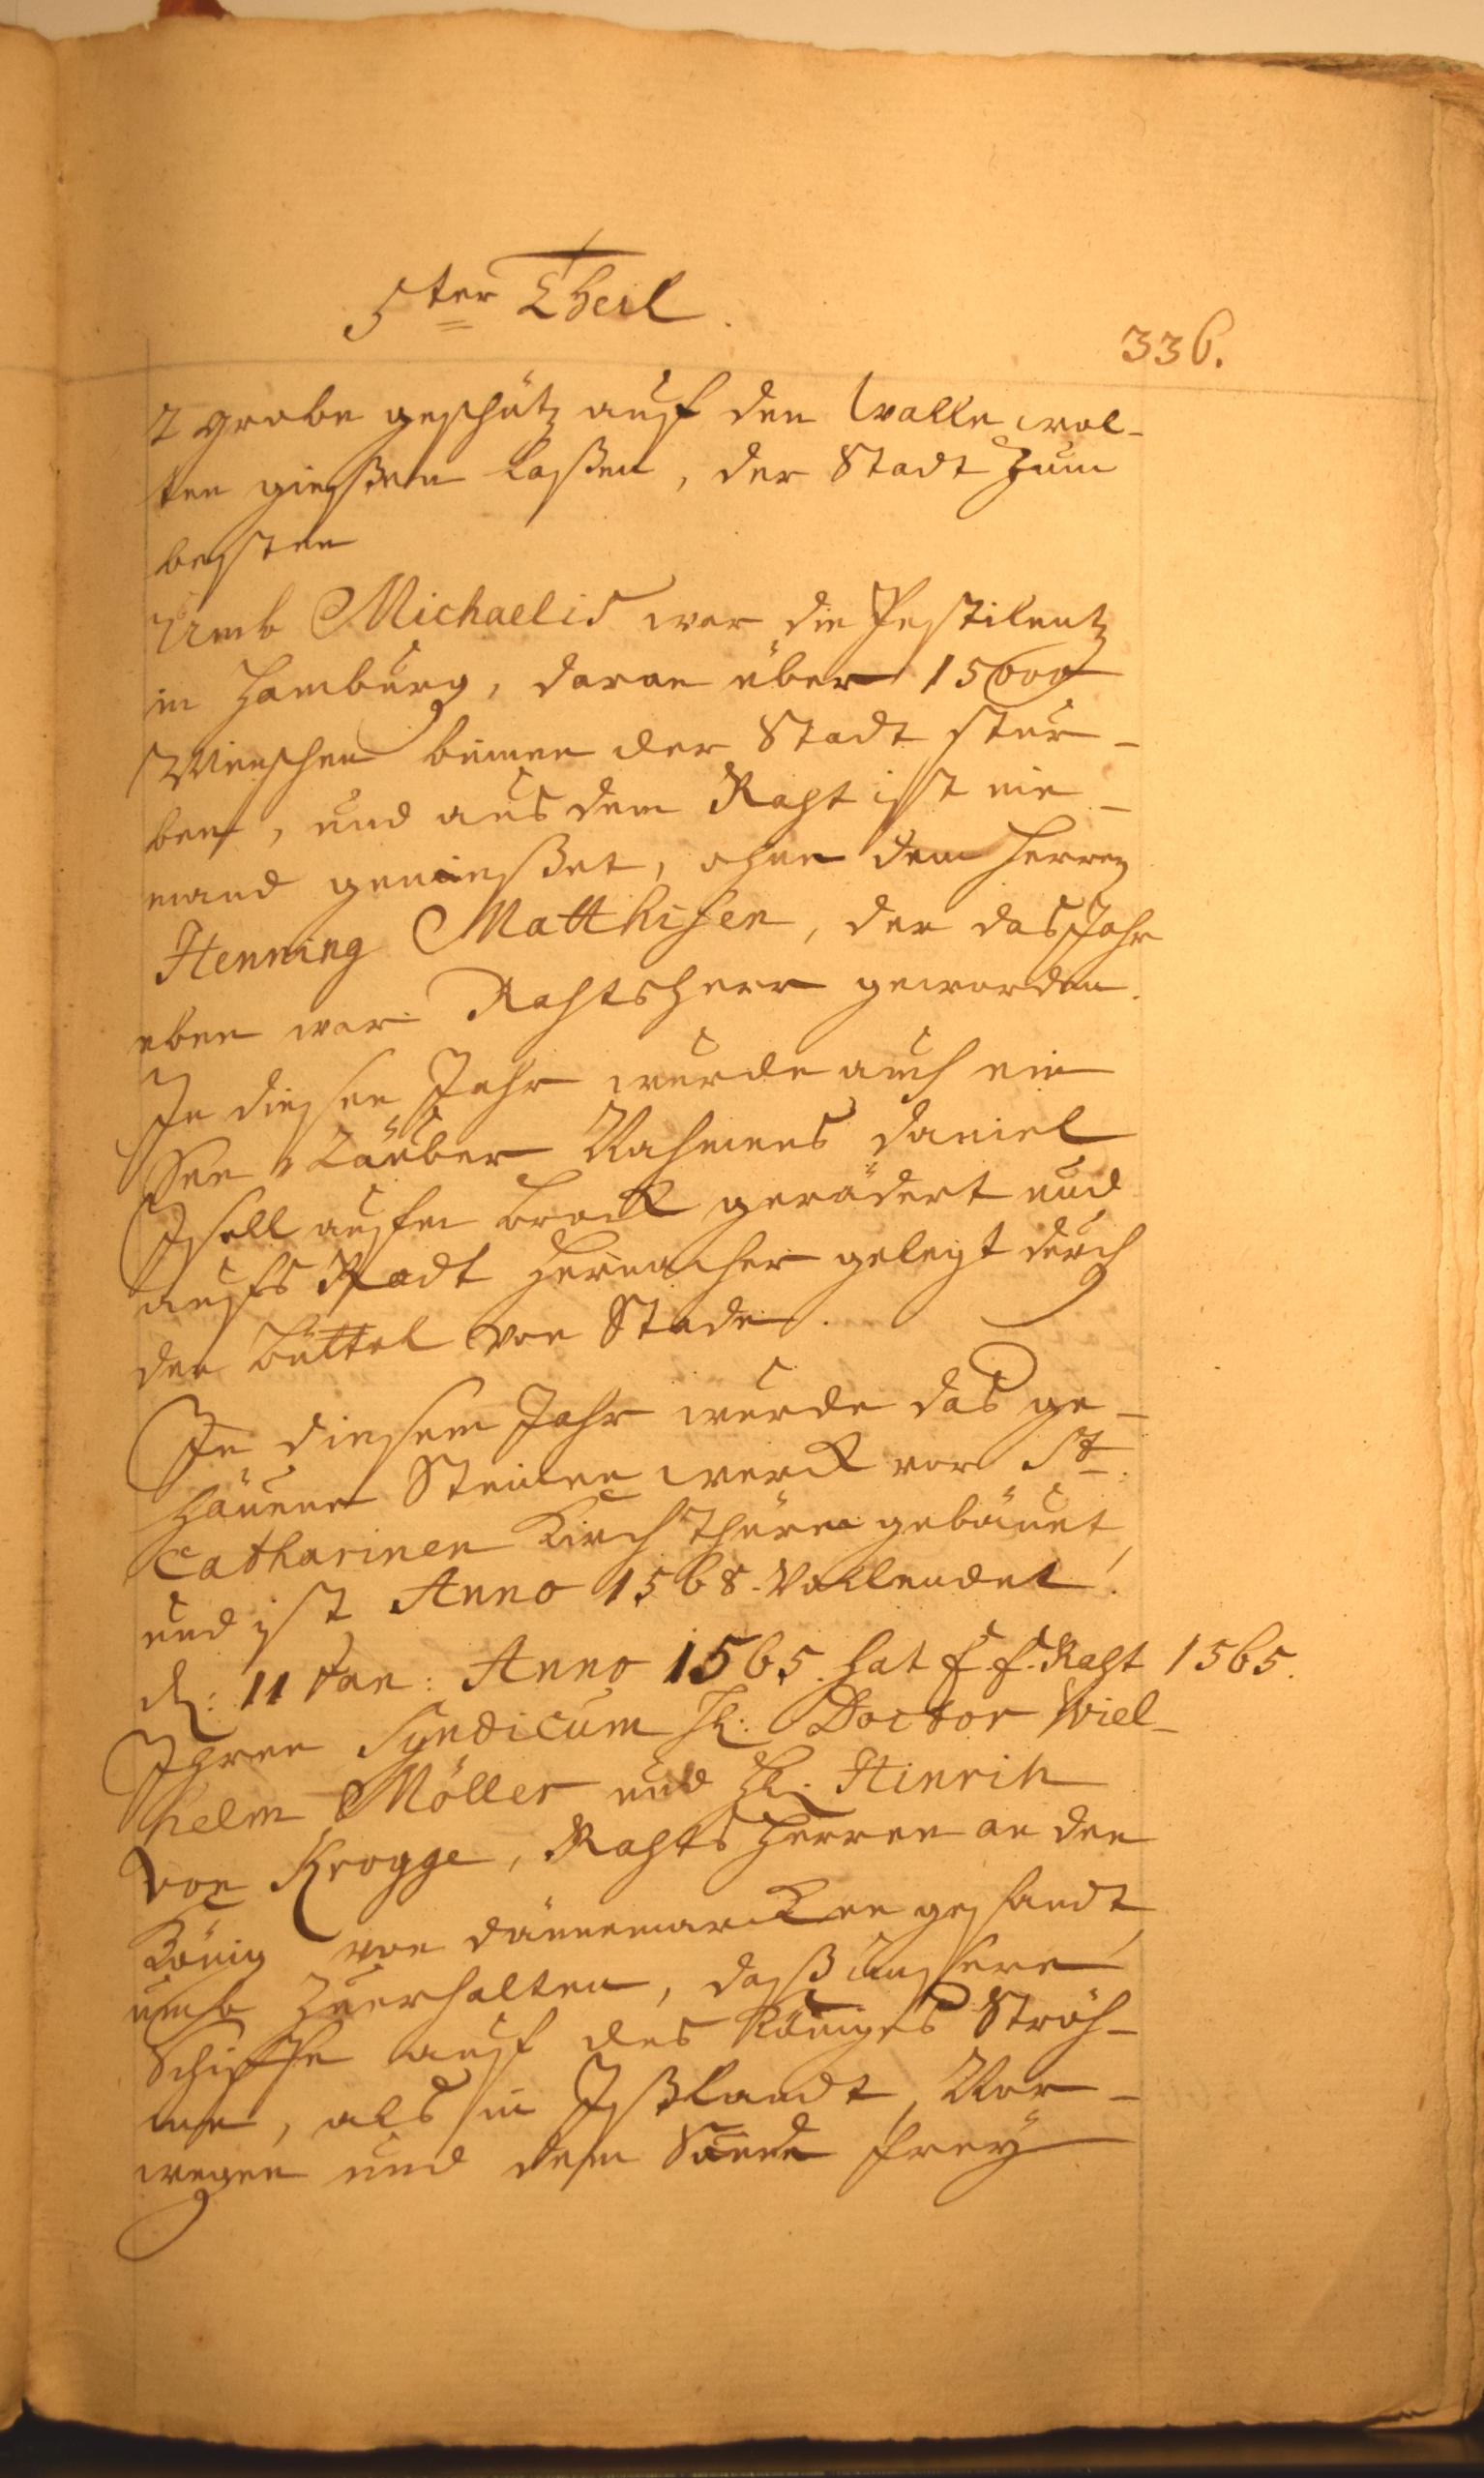 5ter Theil.
336.
2 grobe geschütz auff den Walle wol-
ten giessen laßen, der Stadt zum
besten
Umb Michaelis war die Pestilentz
in Hamburg, daran über 15000
Menschen binnen der Stadt stur-
ben, und aus dem Raht ist nie-
mand gemisset, ohne dem Herren
Henning Matthisen, der das Jahr
eben war Rahtsherr geworden.
In diesen Jahr wurde auch ein
See Räuber Nahmens Daniel
Isell auffen Brock gerädert und
auffs Radt hernacher gelegt durch
den Büttel von Stade.
In diesem Jahr wurde das ge-
häuene Steinen werck vor St.
Catharinen Kirch Thüren gebäuet,
und ist Anno 1568. Vollendet.
d: 11 Jan: Anno 1565. hat E. E. Raht 1565.
Ihren Syndicum H: Doctor Wiel-
helm Möller und H: Hinrih
von Krogge, Rahts Herren an den
König von Dännemarcken gesandt,
umb zuerhalten, daß unsere
Schiffe auff des Königes Ströh-
me, als in Ißlandt, Nor-
wegen und dem Sunde frey